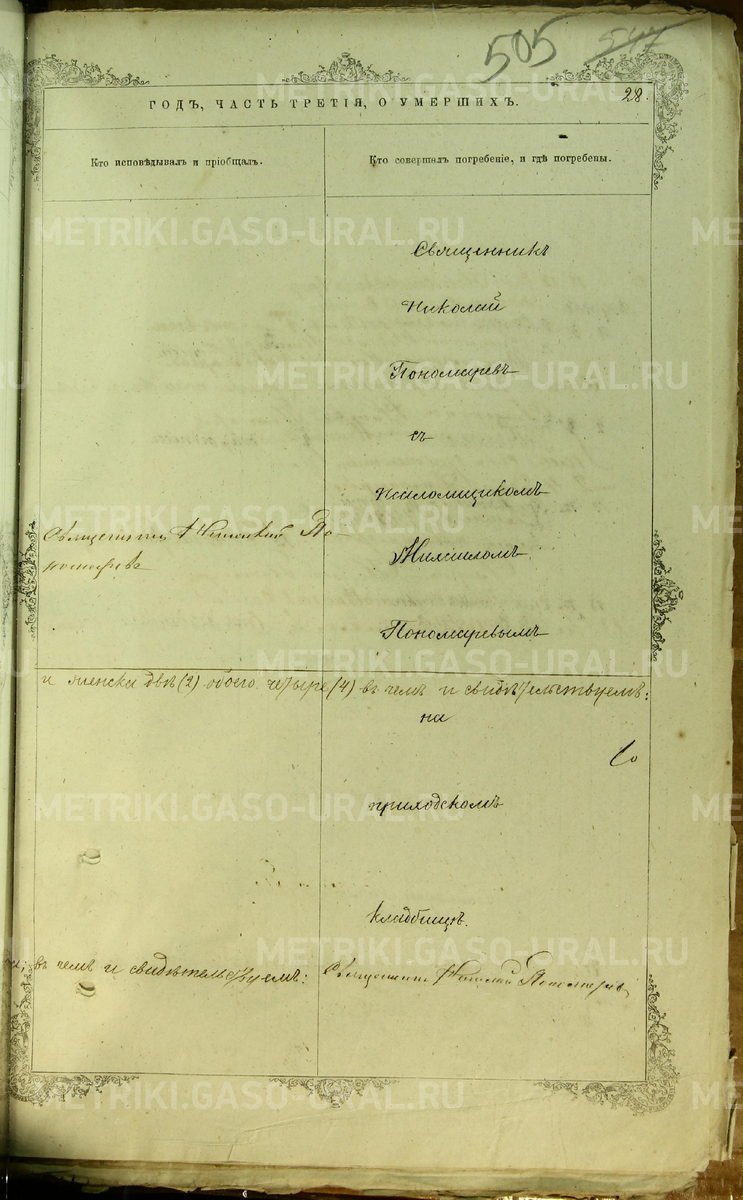 505 547
28.
ГОДЪ, ЧАСТЬ ТРЕТІЯ, О УМЕРШИХЪ.
Кто исповѣдывалъ и пріобщалъ.
Кто совершалъ погребеніе, и гдѣ погребены.
Священникъ
Николай
Пономаревъ
съ
псаломщикомъ
Священникъ Николай По-
номаревъ
Михаиломъ
Пономаревымъ
и женска двѣ (2) обоего четыре (4) въ чемъ и свидѣтельствуемъ:
на
приходскомъ
кладбищѣ.
въ чемъ и свидѣтельствуемъ:
Священникъ Николай Пономаревъ
METRIKI.GASO-URAL.RU